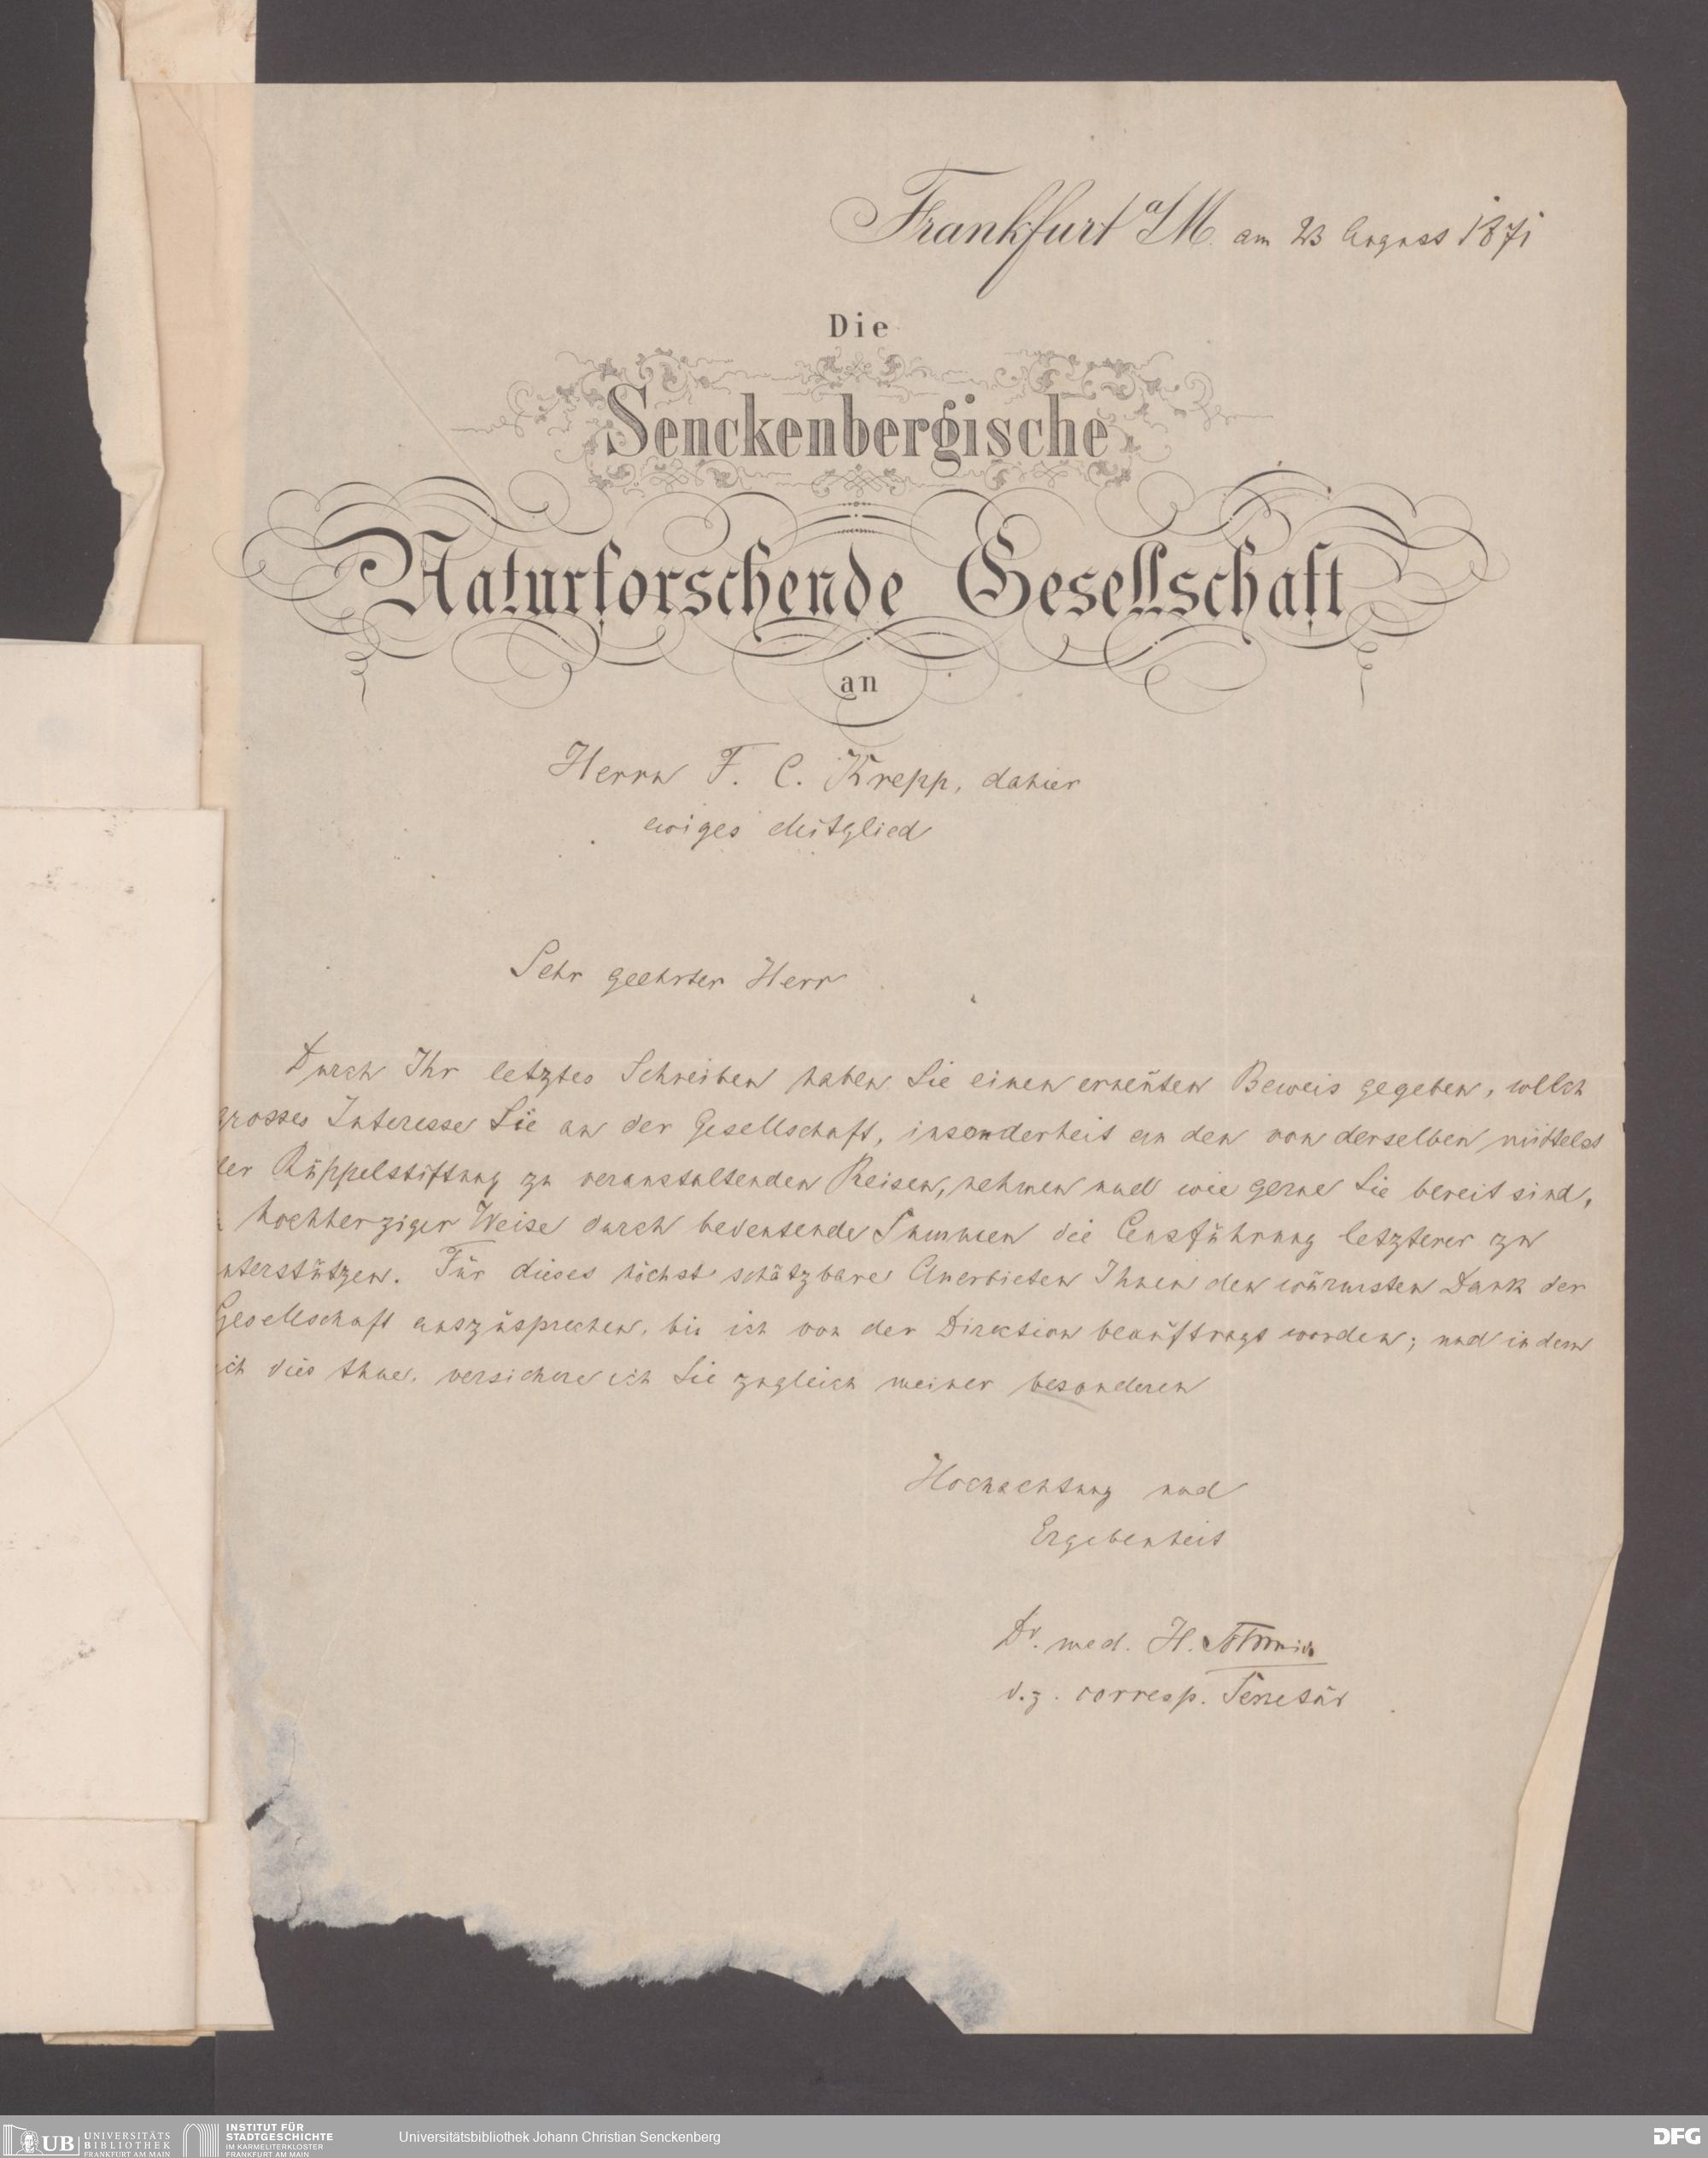 Frankfurt a/M. am 23 August 1871
Die
Senckenbergische
Naturforschende Gesellschaft
an
Herrn F. C. Krepp, dahier
ewiges Mitglied
Sehr geehrter Herr
Durch Ihr letztes Schreiben haben Sie einen erneuten Beweis gegeben, welch
grosses Interesse Sie an der Gesellschaft, insonderheit an den von derselben mittelst
der Rüppelstiftung zu veranstaltenden Reisen, nehmen und wie gerne Sie bereit sind,
hochherziger Weise durch bedeutende Summen die Ausführung letzterer zu
unterstützen. Für dieses höchst schätzbare Anerbieten Ihnen den wärmsten Dank der
Gesellschaft auszusprechen, bin ich von der Direction beauftragt worden; und indem
ich dies thue, versichere ich Sie zugleich meiner besonderen
Hochachtung und
Ergebenheit
Dr. med. H.
d. z. corresp. Secretär
UB UNIVERSITÄTS
BIBLIOTHEK
FRANKFURT AM MAIN
INSTITUT FÜR
STADTGESCHICHTE
IM KARMELITERKLOSTER
FRANKFURT AM MAIN
Universitätsbibliothek Johann Christian Senckenberg
DFG